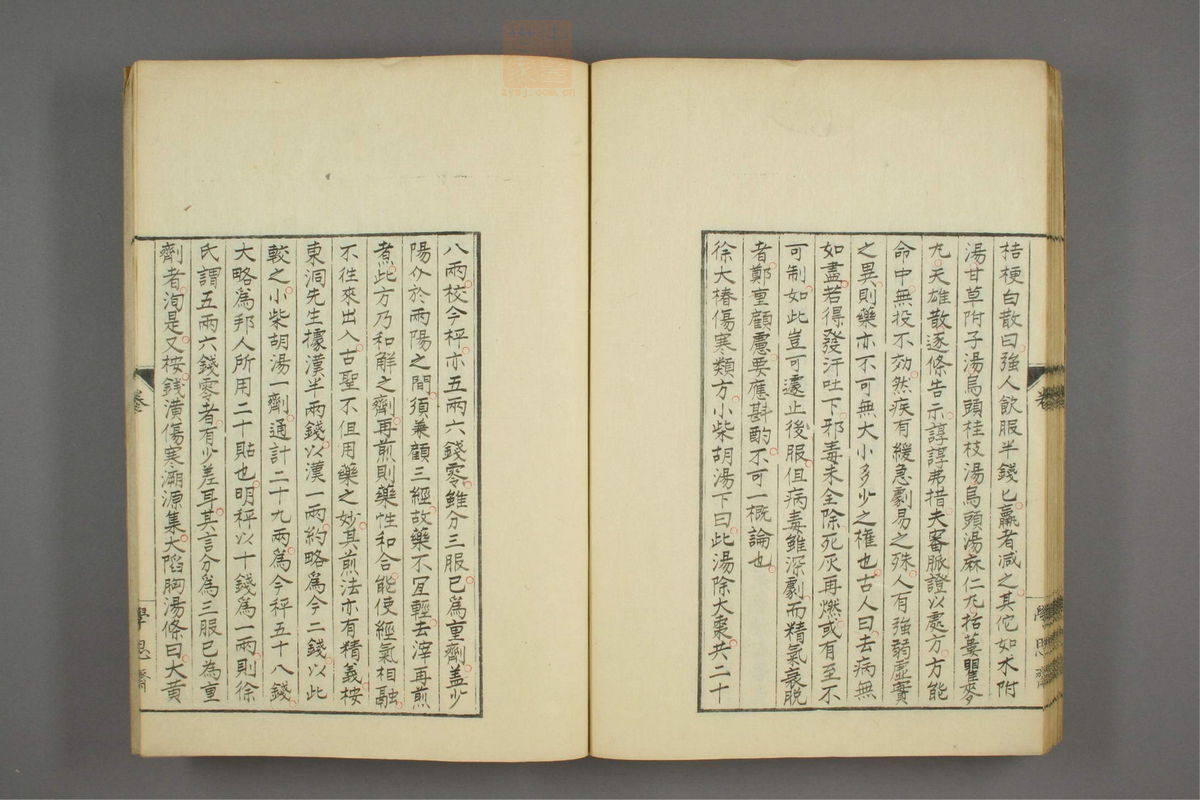 桔梗白散曰強人飲服半錢匕羸者減之其佗如朮附
湯甘草附子湯烏頭桂枝湯烏頭湯麻仁丸栝蔞瞿麥
丸天雄散逐條告示諄諄弗措夫審脈證以處方方能
命中無投不効然疾有緩急劇易之殊人有強弱虛實
之異則藥亦不可無大小多少之權也古人曰去病無
如盡若得發汗吐下邪毒未全除死灰再燃或有至不
可制如此豈可遽止後服但病毒雖深劇而精氣衰脫
者鄭重顧慮要應斟酌不可一概論也
徐大椿傷寒類方小柴胡湯下曰此湯除大棗共二十
八兩校今秤亦五兩六錢零雖分三服已為重劑蓋少
陽介於兩陽之間須兼顧三經故藥不宜輕去滓再煎
煮此方乃和解之劑再煎則藥性和合能使經氣相融
不徃來出入古聖不但用藥之妙其煎法亦有精義桉
東洞先生據漢半兩錢以漢一兩約略爲今二錢以此
較之小柴胡湯一劑通計二十九兩爲今秤五十八錢
大略爲邦人所用二十貼也明秤以十錢爲一兩則徐
氏謂五兩六錢零者有少差耳其言分爲三服已為重
劑者洵是又桉錢潢傷寒溯源集大陷胸湯條曰大黃
卷
學思齋